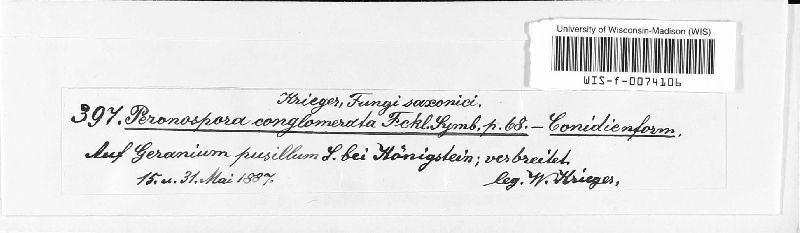 University of Wisconsin-Madison (WIS)
WIS-f-0074106
Krieger, Fungi saxonici.
397. Peronospora conglomerata Fckl. Symb. p. 68. – Conidienform.
Auf Geranium pusillum L. bei Königstein; verbreitet.
15. u. 31. Mai 1887. leg. W. Krieger.